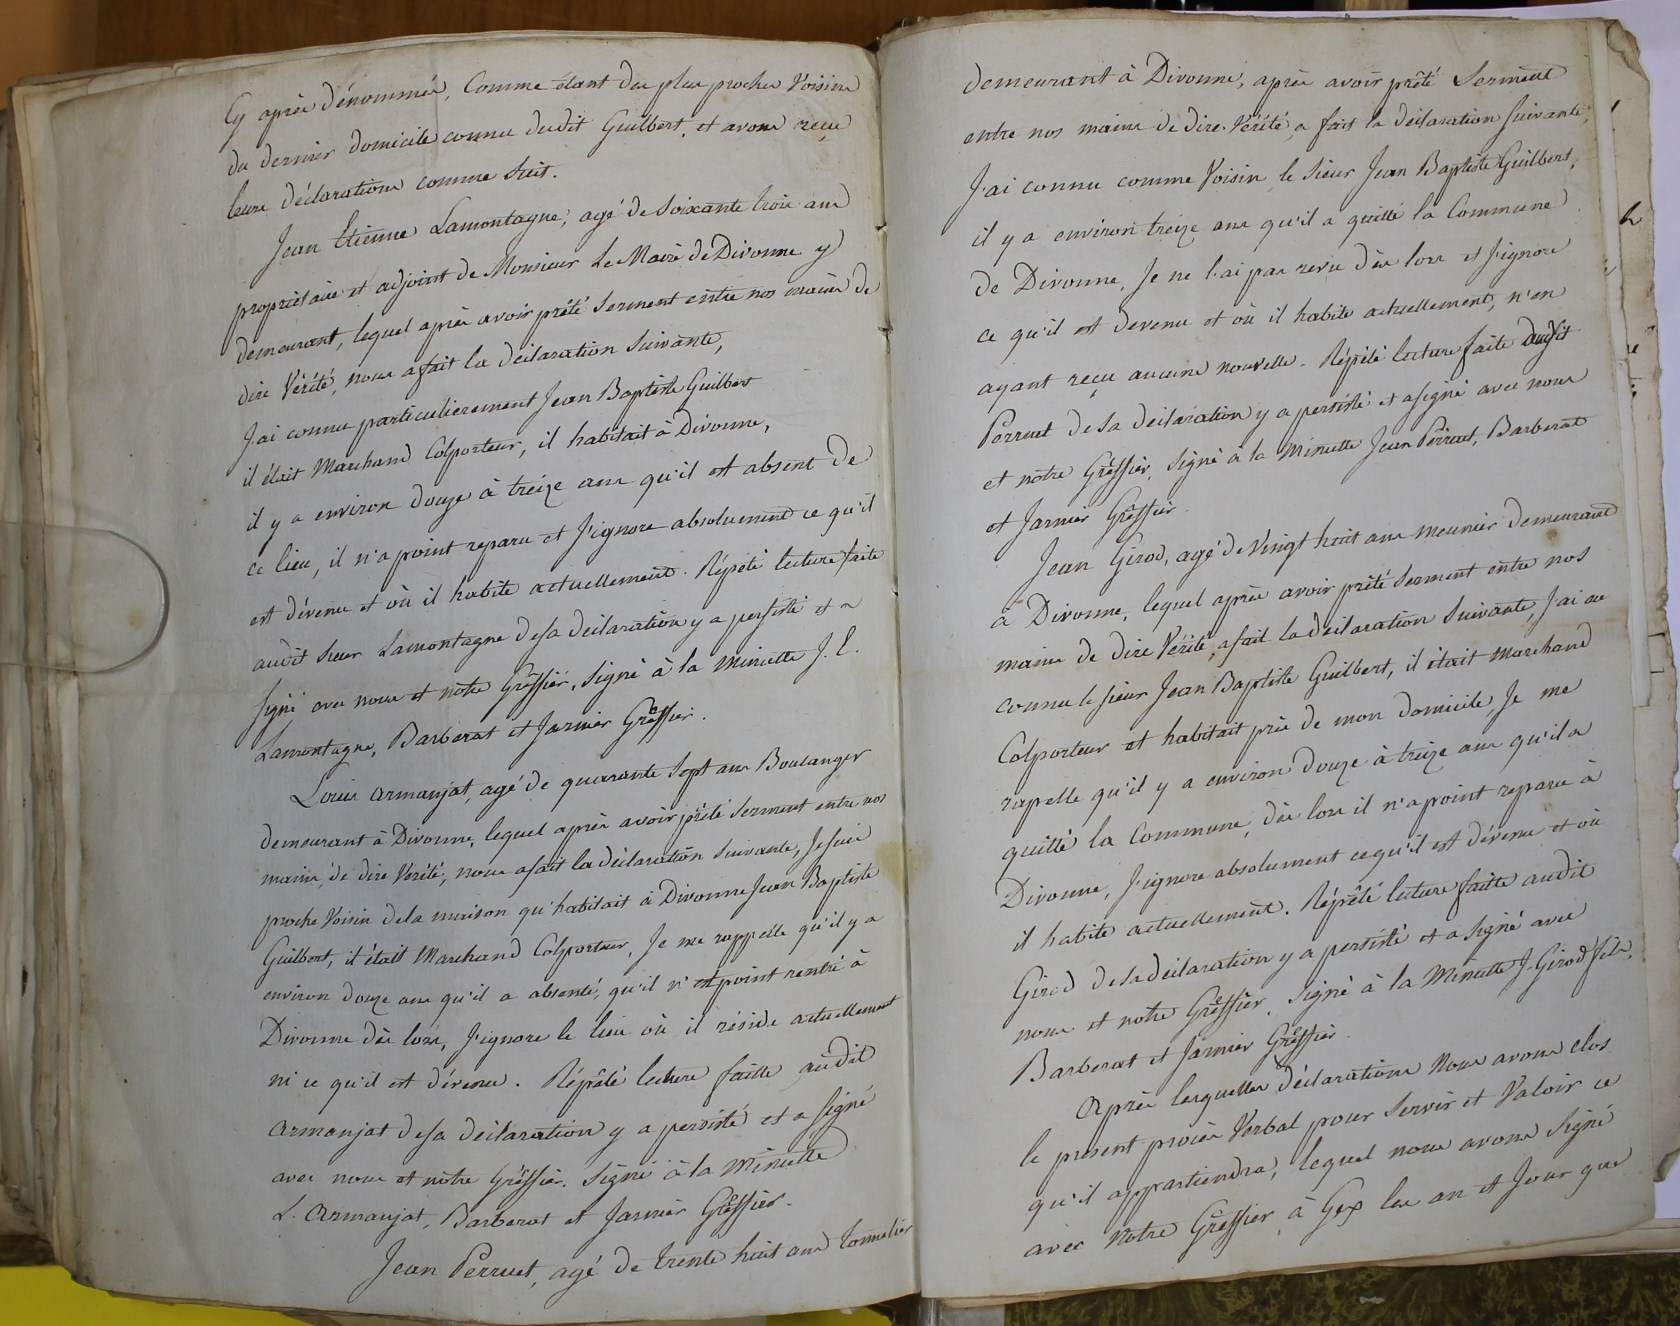 Cy après dénommés, Comme étant des plus proches Voisins
du dernier domicile connu dudit Guilbert, et avons reçu
leurs déclarations comme suit.
Jean Etienne Lamontagne, agé de soixante trois ans
propriétaire et adjoint de Monsieur Le Maire de Divonne y
demeurant, lequel après avoir prêté serment entre nos mains de
dire Vérité, nous a fait la déclaration suivante,
J'ai connu particulierement Jean Baptiste Guilbert
il était Marchand Colporteur, il habitait à Divonne,
il y a environ douze à treize ans qu'il est absent de
ce lieu, il n'a point reparu et J'ignore absolument ce qu'il
est dévenu et où il habite actuellement. Répété lecture faite
audit sieur Lamontagne de sa déclaration y a persisté et a
signé avec nous et nôtre Greffier, signé à la minutte J. E.
Lamontagne, Barberat et Jarnier Greffier.
Louis armanjat, agé de quarante sept ans Boulanger
demeurant à Divonne, lequel après avoir prêté serment entre nos
mains, de dire Vérité, nous a fait la déclaration suivante, Je suis
proche Voisin de la maison qu'habitait à Divonne Jean Baptiste
Guilbert, il était Marchand Colporteur, Je me rappelle qu'il y a
environ douze ans qu'il a absenté, qu'il n'est point rentré à
Divonne dès lors, J'ignore le lieu où il réside actuellement
ni ce qu'il est dévenu. Répété lecture faitte audit
armanjat de sa déclaration y a persisté et a signé
avec nous et nôtre Greffier. Signé à la minutte
L. armanjat, Barberat et Jarnier Greffier.
Jean Perruet, agé de trente huit ans tonnelier
demeurant à Divonne, après avoir prêté Serment
entre nos mains de dire Vérité, a fait la déclaration suivante,
J'ai connu comme Voisin le sieur Jean Baptiste Guilbert,
il y a environ treize ans qu'il a quitté la Commune
de Divonne, Je ne l'ai pas revu dès lors et J'ignore
ce qu'il est devenu et où il habite actuellement, n'en
ayant reçu aucune nouvelle. Répété lecture faite audit
Perruet de sa déclaration y a persisté et a signé avec nous
et nôtre Greffier, Signé à la Minutte Jean Perruet, Barberat
et Jarnier Greffier
Jean Girod, agé de Vingt huit ans meunier demeurant
à Divonne, lequel après avoir prêté serment entre nos
mains de dire Vérité, a fait la déclaration suivante, J'ai
connu le sieur Jean Baptiste Guilbert, il était Marchand
Colporteur et habitait près de mon domicile, Je me
rapelle qu'il y a environ douze à treize ans qu'il a
quitté la Commune, dès lors il n'a point reparu à
Divonne, J'ignore absolument ce qu'il est dévenu et où
il habite actuellement. Répété lecture faitte audit
Girod de sa déclaration y a persisté et a signé avec
nous et notre Greffier, Signé à la Minutte J. Girod fils,
Barberat et Jarnier Greffier
Après lesquelles déclarations Nous avons clos
le présent procès Verbal pour servir et Valoir ce
qu'il appartiendra, lequel nous avons signé
avec Notre Greffier à Gex les an et Jour que